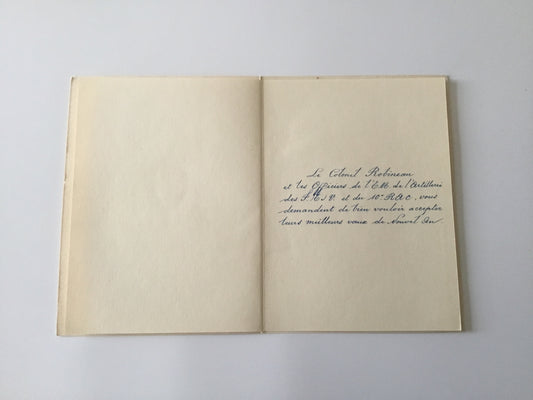 Le Colonel Robineau
et les Officiers de l'E.M. de l'Artillerie
des F.T.S.V. et du 10e R.A.C. vous
demandent de bien vouloir accepter
leurs meilleurs vœux de Nouvel An.